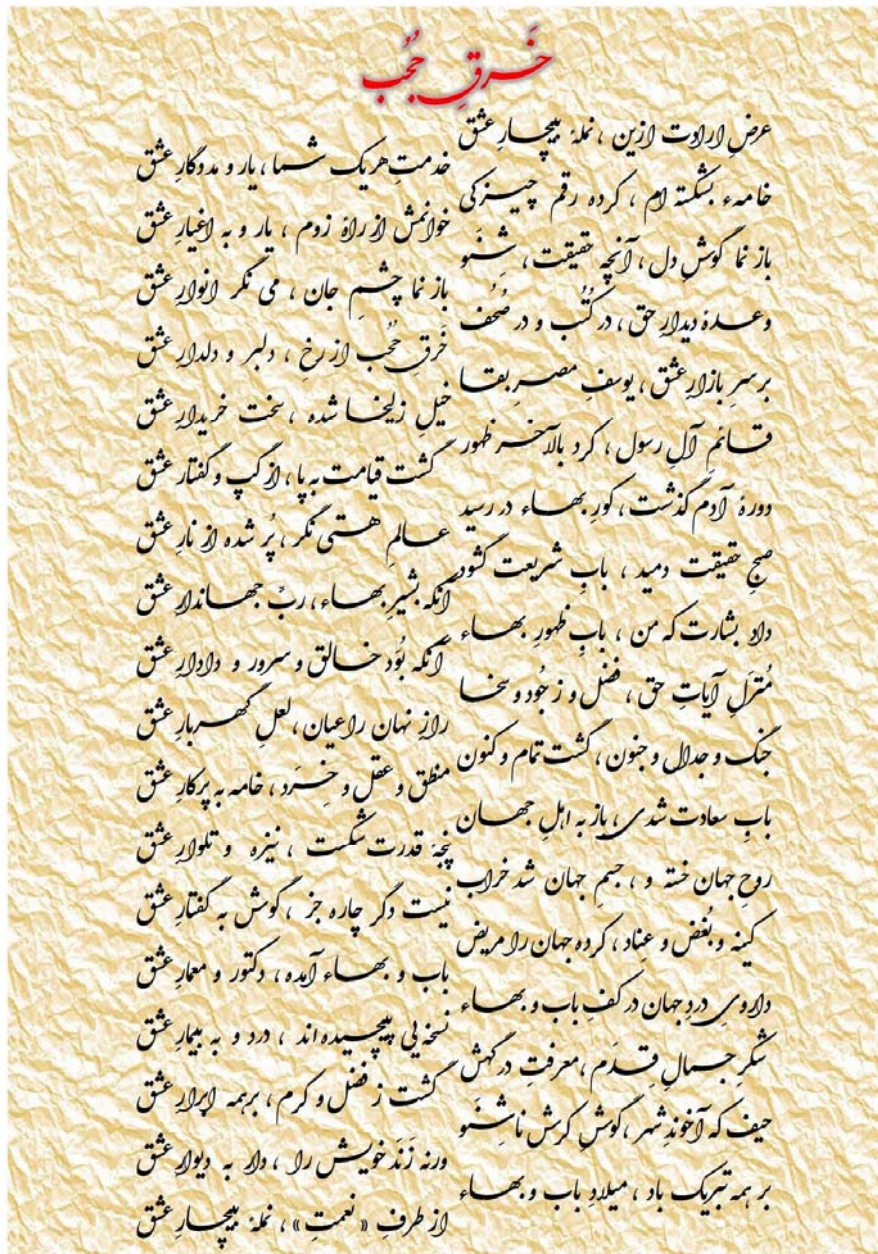 خَرقِ حُجُب
عرضِ ارادت ازین ، نملهٔ بیچارِ عشق
خدمتِ هریک شما ، یار و مددگارِ عشق
خامهء بشکسته ام ، کرده رقم چیزکی
خوانمش از راهٔ زوم ، یار و به اغیارِ عشق
باز نما گوشِ دل ، آنچه حقیقت ، شِنَو
باز نما چشمِ جان ، می نگر انوارِ عشق
وعدهٔ دیدارِ حق ، در کُتُب و در صُحُف
خَرقِ حُجُب از رخِ ، دلبر و دلدارِ عشق
برسرِ بازارِ عشق ، یوسفِ مصرِ بقا
خیلِ زلیخا شده ، سخت خریدارِ عشق
قائمِ آلِ رسول ، کرد بالآخر ظهور
گشت قیامت به پا ، از گپ و گفتار عشق
دورهٔ آدم گذشت ، کورِ بهاء در رسید
عالمِ هستی نگر ، پُر شده از نارِ عشق
صبحِ حقیقت دمید ، بابِ شریعت گشود
آنکه بشیرِ بهاء ، ربّ جهاندارِ عشق
داد بشارت که من ، بابِ ظهورِ بهاء
آنکه بُوَد خالق و سرور و دادارِ عشق
مُنزلِ آیاتِ حق ، فضل و ز جُود و سخا
رازِ نهان را عیان ، لعلِ گهربارِ عشق
جنگ و جدال و جنون ، گشت تمام و کنون
منطق و عقل و خِرَد ، خامه به پرکارِ عشق
بابِ سعادت شدی ، باز به اهلِ جهان
پنجهٔ قدرت شکست ، نیزه و تلوارِ عشق
روحِ جهان خسته و ، جسمِ جهان شد خراب
نیست دگر چاره جز ، گوش به گفتارِ عشق
کینه و بُغض و عِناد ، کرده جهان را مریض
باب و بهاء آمده ، دکتور و معمارِ عشق
داروی دردِ جهان در کفِ باب و بهاء
نسخه یی پیچیده اند ، درد و به بیمارِ عشق
شکرِ جمالِ قِدَم ، معرفتِ درگهش
گشت ز فضل و کرم ، برهمه ابرارِ عشق
حیف که آخوندِ شهر ، گوشِ کرش ناشِنَو
ورنه زَنَد خویش را ، دار به دیوارِ عشق
بر همه تبریک باد ، میلادِ باب و بهاء
از طرفِ « نعمت » ، نملهٔ بیچارِ عشق